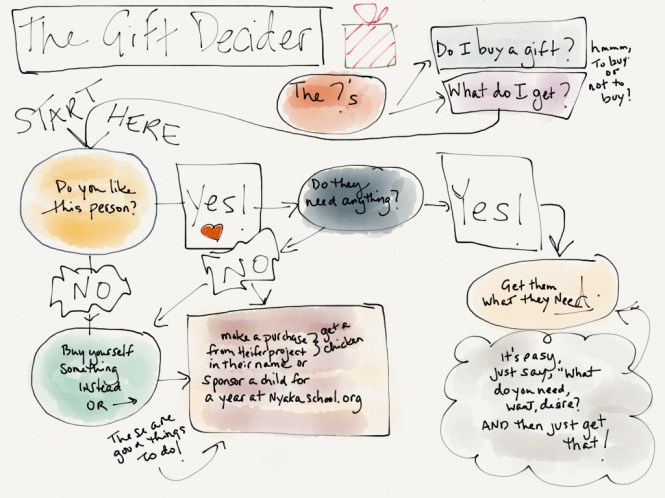 The Gift Decider
Do I buy a gift?
What do I get?
hmmm,
To buy
or
not to
buy?
The ?'s
START
HERE
Do you like
this person?
Yes!
Do they
need anything?
Yes!
NO
NO
Get them
what they Need!
Buy yourself
Something
Instead
OR
make a purchase
from Heifer project
in their name or
sponsor a child for
a year at Nyaka School.org
get a
chicken
These are
good things
To do!
It's easy,
just say, "What
do you need,
want, desire?
AND then just get
that!